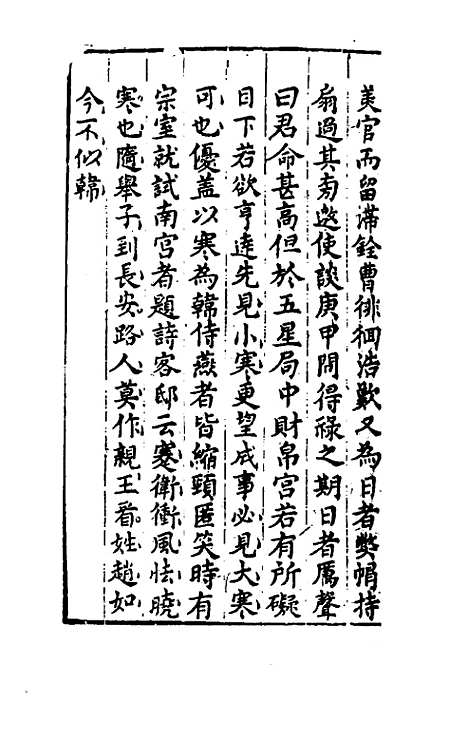 美官而留滯銓曹徘徊浩歎又為日者獘㡌持
扇過其旁邀使談庚甲問得祿之期日者厲聲
曰君命甚高但於五星局中財帛宮若有所礙
目下若欲亨達先見小寒更望成事必見大寒
可也優盖以寒為韓侍燕者皆縮頸匿笑時有
宗室就試南宮者題詩客邸云蹇衛衝風怯曉
寒也隨舉子到長安路人莫作親王看姓趙如
今不似韓